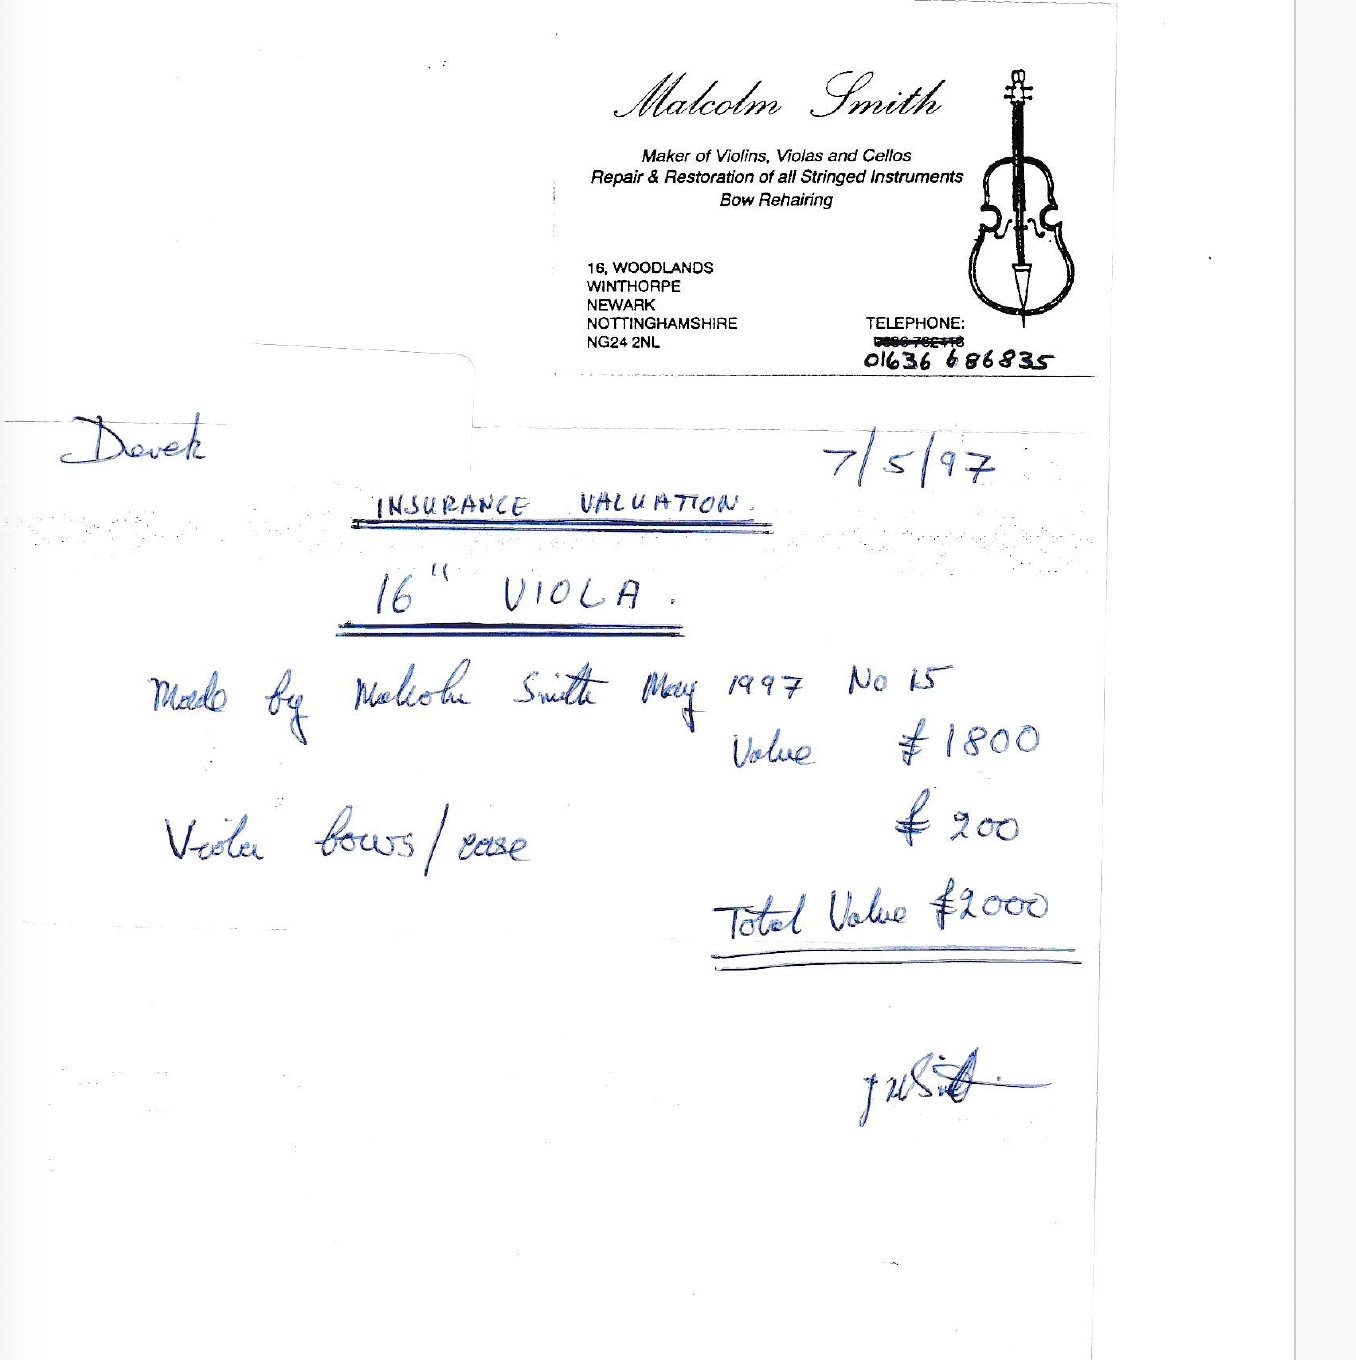 Malcolm Smith
Maker of Violins, Violas and Cellos
Repair & Restoration of all Stringed Instruments
Bow Rehairing
16, WOODLANDS
WINTHORPE
NEWARK
NOTTINGHAMSHIRE
NG24 2NL
TELEPHONE:
01636 686835
Derek
7/5/97
INSURANCE VALUATION.
16" VIOLA.
Made by Malcolm Smith May 1997 No 15
Value £1800
Viola bows/case £200
Total Value £2000